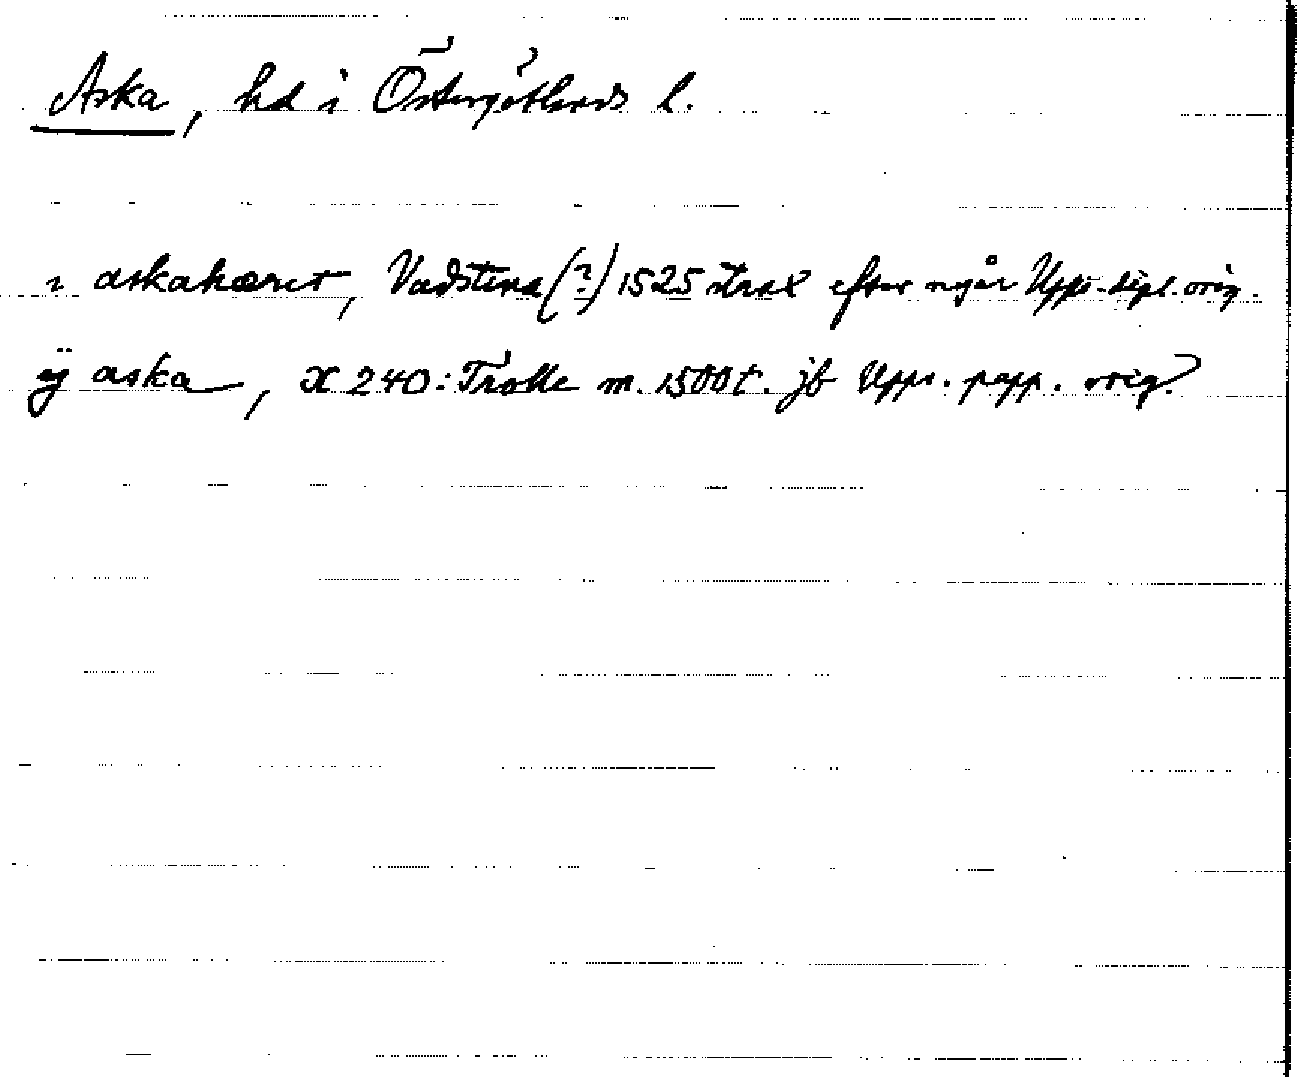 Aska, hd i Östergötlands l.
i askahæret, Vadstena (?) 1525 strax efter nyår Upps. dipl. orig.
ÿ aska, X 240: Trolle m. 1500t. jb Upps. papp. orig?